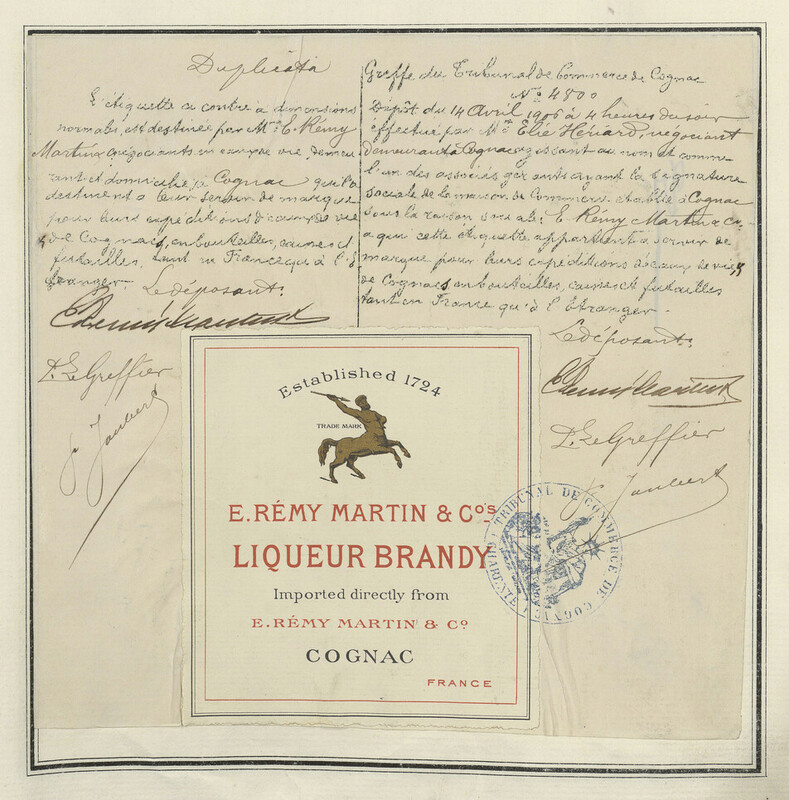 Duplicata
L'étiquette ci contre à dimensions
normales, est destinée par Mrs E. Rémy
Martin négociants en eaux de vie, demeu
rant et domiciliés à Cognac qui la
destinent à leur servir de marque
pour leurs expéditions d'eaux de vie
de Cognac, en bouteilles, caisses et
futailles, tant en France qu'à l'é
tranger
Le déposant:
E Remy Martin
Le Greffier
Jaubert
Greffe du Tribunal de Commerce de Cognac
No 4800
Dépôt du 14 Avril 1906 à 4 heures du soir
effectué par Mr Elie Hériard, négociant
demeurant à Cognac agissant au nom et comme
l'un des associés gérants ayant la signature
sociale de la maison de Commerce établie à Cognac
sous la raison sociale: E. Rémy Martin & Co.
à qui cette étiquette appartient à servir de
marque pour leurs expéditions d'eaux de vie
de Cognac en bouteilles, caisses et futailles
tant en France qu'à l'étranger.
Le déposant:
E Remy Martin
Le Greffier
Jaubert
Established 1724
TRADE MARK
E. RÉMY MARTIN & Co's
LIQUEUR BRANDY
Imported directly from
E. RÉMY MARTIN & Co
COGNAC
FRANCE
TRIBUNAL DE COMMERCE DE COGNAC (CHARENTE)